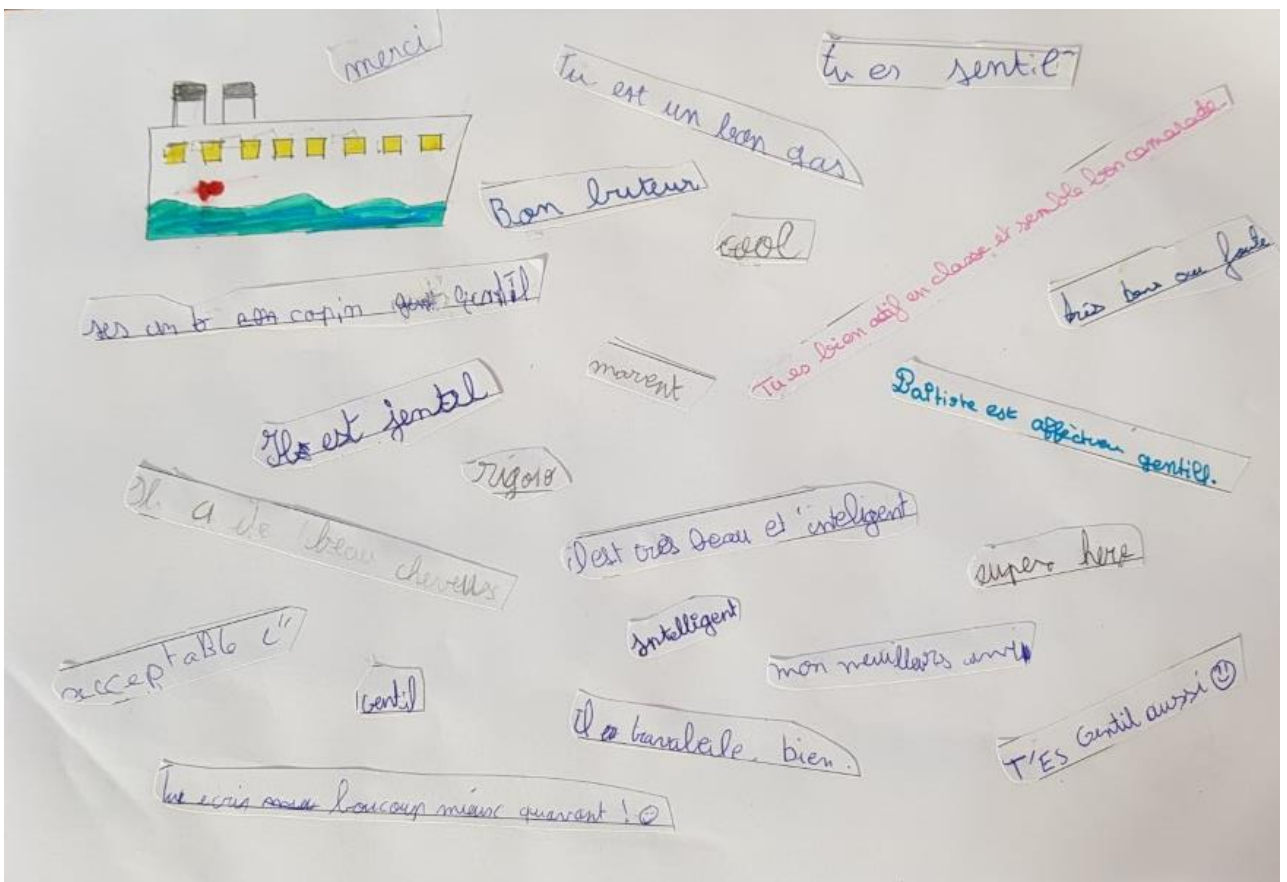 merci
Tu est un bon gas
tu es sentil
Bon buteur
cool
Tu es bien actif en classe et semble bon camarade.
très bons au foute
ses un b copin gentil
marent
Baptiste est affèctueu gentill.
Il est jentel
rigoro
Il a de beau cheveus
il est très beau et inteligent
super hero
Intelligent
acceptable
gentil
mon meuilleurs ami
Il travaleile bien.
T'ES Gentil aussi ☺
tu ecris boucoup mieux quavant ! ☺